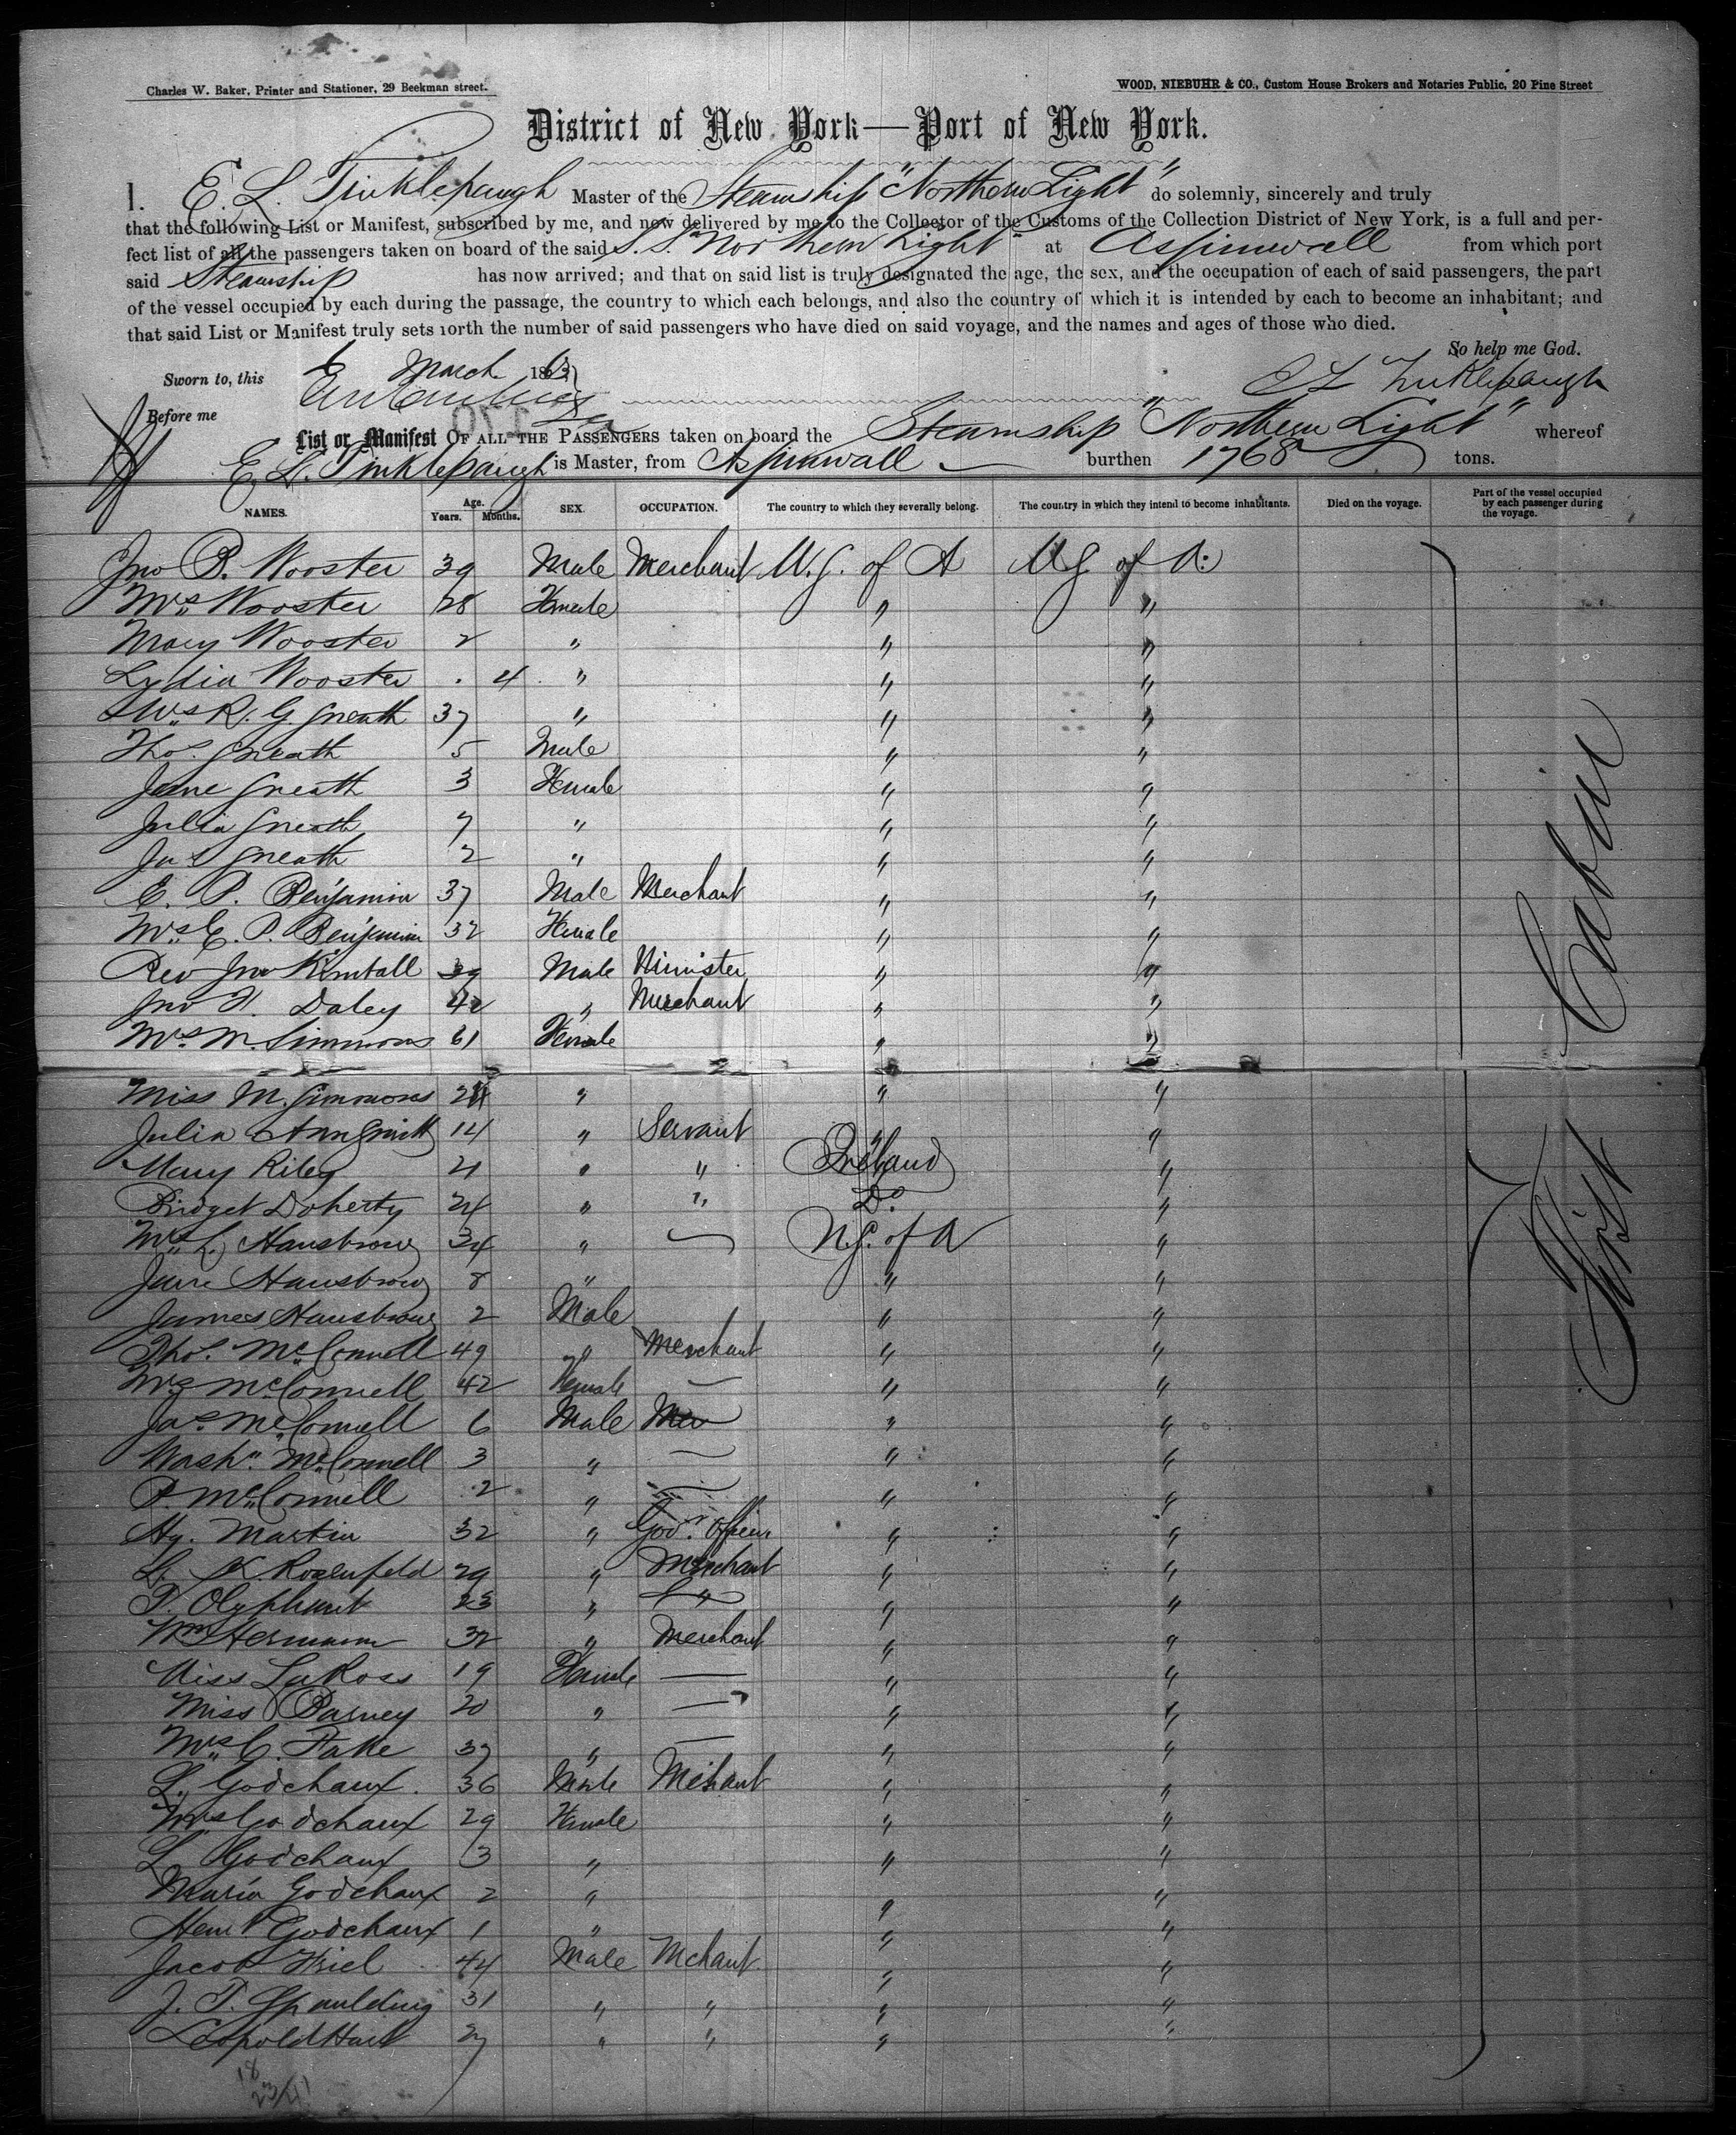 Charles W. Baker, Printer and Stationer, 29 Beekman street.
WOOD, NIEBUHR & CO., Custom House Brokers and Notaries Public, 20 Pine Street
District of New York—Port of New York.
I. E. L. Tinklepaugh Master of the Steamship "Northern Light" do solemnly, sincerely and truly
that the following List or Manifest, subscribed by me, and now delivered by me to the Collector of the Customs of the Collection District of New York, is a full and per-
fect list of all the passengers taken on board of the said S. S. "Northern Light" at Aspinwall from which port
said Steamship has now arrived; and that on said list is truly designated the age, the sex, and the occupation of each of said passengers, the part
of the vessel occupied by each during the passage, the country to which each belongs, and also the country of which it is intended by each to become an inhabitant; and
that said List or Manifest truly sets forth the number of said passengers who have died on said voyage, and the names and ages of those who died.
So help me God.
Sworn to, this 6 March 1863
E L Tinklepaugh
Before me
List or Manifest OF ALL THE PASSENGERS taken on board the Steamship "Northern Light" whereof
E. L. Tinklepaugh is Master, from Aspinwall burthen 1768 tons.
NAMES. Age. Years. Months. SEX. OCCUPATION. The country to which they severally belong. The country in which they intend to become inhabitants. Died on the voyage. Part of the vessel occupied by each passenger during the voyage.
Jno P. Wooster 39 Male Merchant U.S. of A U S of A.
Mrs Wooster 28 Female " "
Mary Wooster 2 " " "
Lydia Wooster . 4 " " "
Mrs R. G. Sneath 37 " " "
Thos. Sneath 5 Male " "
Jane Sneath 3 Female " "
Julia Sneath 7 " " "
Jas Sneath 2 " " "
E. P. Benjamin 37 Male Merchant " "
Mrs E. P. Benjamin 32 Female " "
Rev Jno Kimball 39 Male Minister " "
Jno F. Daley 42 " Merchant " "
Mrs M. Simmons 61 Female " "
Miss M. Simmons " " "
Julia Ann Smith 14 " Servant " "
Mary Riley 21 " " Ireland "
Bridget Doherty 24 " " Do "
Mrs L. Hansbrow 34 " U.S. of A "
Jane Hansbrow 8 " " "
James Hansbrow 2 Male " "
Thos. McConnell 49 " Merchant " "
Mrs McConnell 42 Female — " "
Jas McConnell 6 Male Mer " "
Washn. McConnell 3 " — " "
P. McConnell 2 " — " "
Hy. Martin 32 " Govt. Officer " "
L. K. Rosenfeld 29 " Merchant " "
T. Olyphant 23 " " " "
Wm Hermann 32 " Merchant " "
Miss LaRoss 19 Female — " "
Miss Barney 20 " — " "
Mrs C. Flake 37 " — " "
L. Godchaux 36 Male Mechant " "
Mrs Godchaux 29 Female " "
L Godchaux 3 " " "
Maria Godchaux 2 " " "
Henrt Godchaux 1 " " "
Jacob Friel 44 Male Mchant " "
J. T. Spaulding 31 " " " "
Leopold Hart 27 " " " "
First Cabin
18
23/41